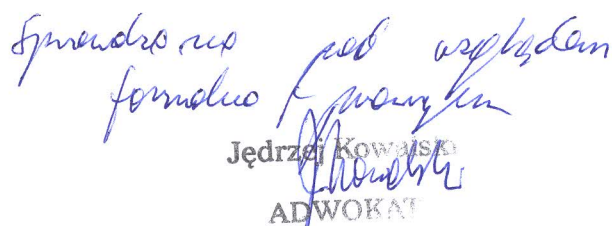 Sprawdzono pod względem
formalno prawnym
Jędrzej Kowalski
ADWOKAT